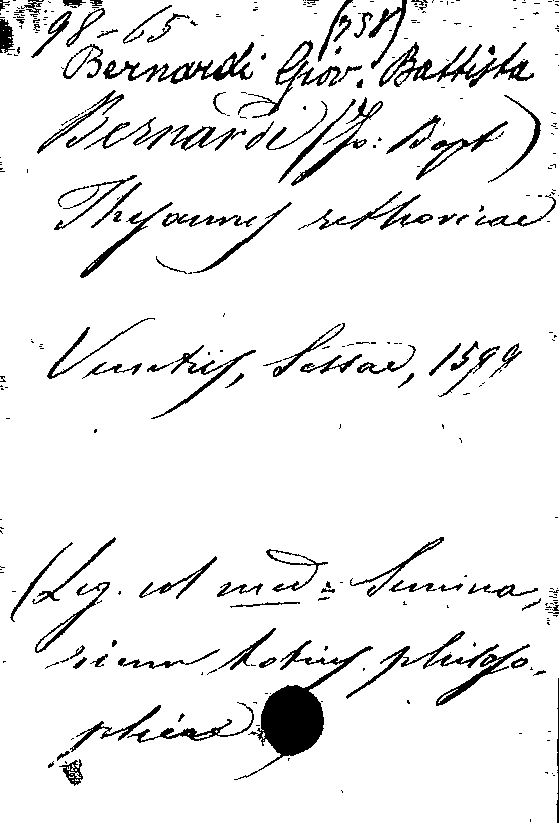 98-65 (738)
Bernardi Giov. Battista
Bernardi (Jo: Bapt)
Thesaurus rethoricae
Venetiis, Sessae, 1599
(Leg. col med=: Semina,
rium totius philoso,
phiae)